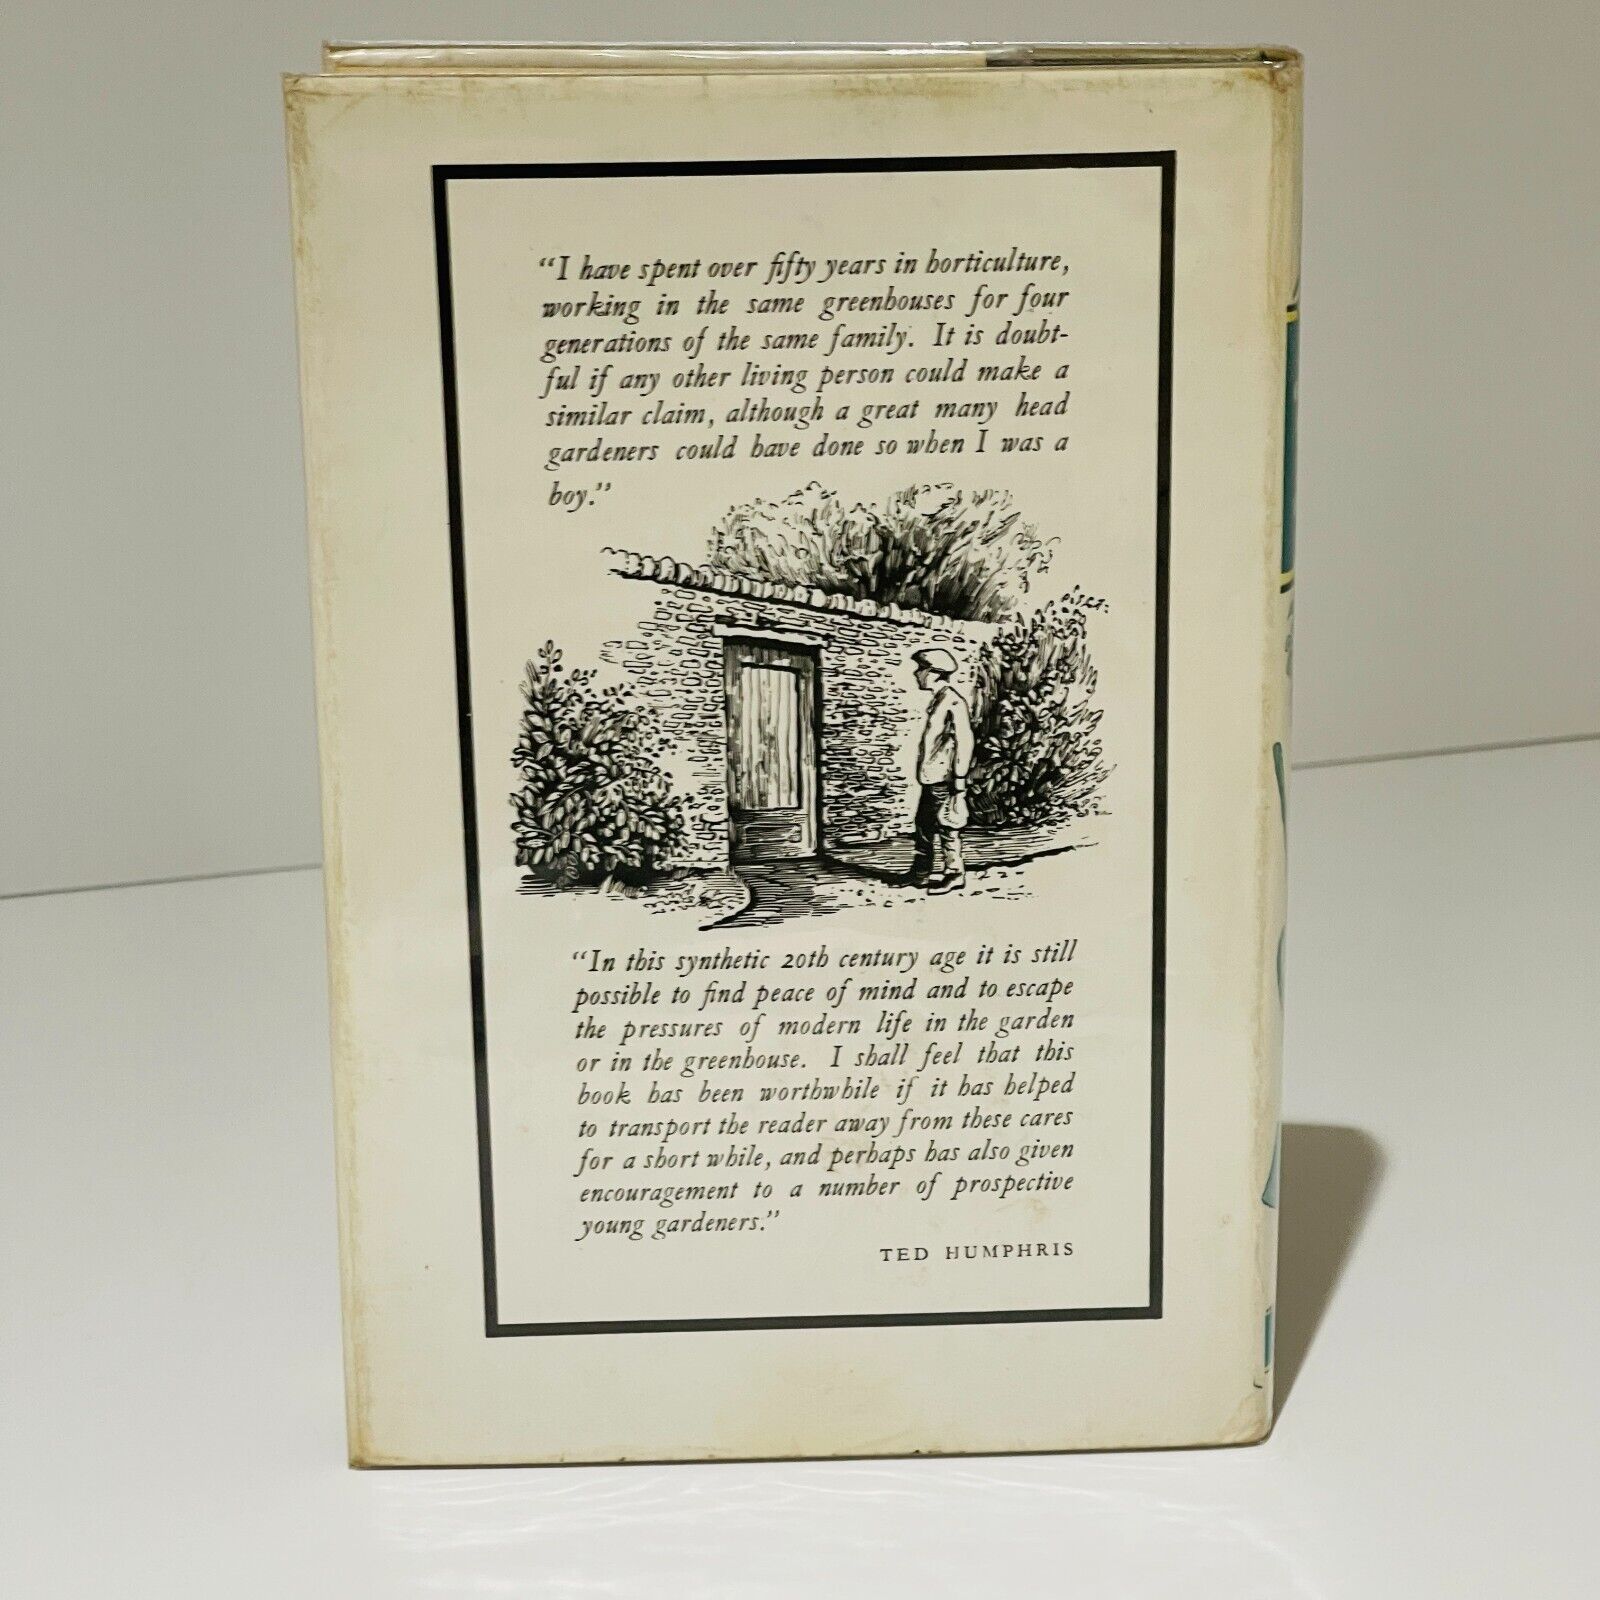 “I have spent over fifty years in horticulture,
working in the same greenhouses for four
generations of the same family. It is doubt-
ful if any other living person could make a
similar claim, although a great many head
gardeners could have done so when I was a
boy.”
PISCA:
“In this synthetic 20th century age it is still
possible to find peace of mind and to escape
the pressures of modern life in the garden
or in the greenhouse. I shall feel that this
book has been worthwhile if it has helped
to transport the reader away from these cares
for a short while, and perhaps has also given
encouragement to a number of prospective
young gardeners.”
TED HUMPHRIS